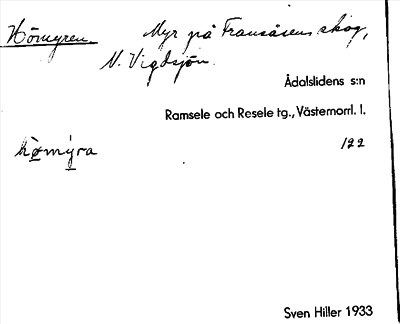 Hömyren Myr på Fransåsens skog,
N. Vigdsjön.
Ådalslidens s:n
Ramsele och Resele tg., Västernorrl. l.
hø̀mýra 122
Sven Hiller 1933